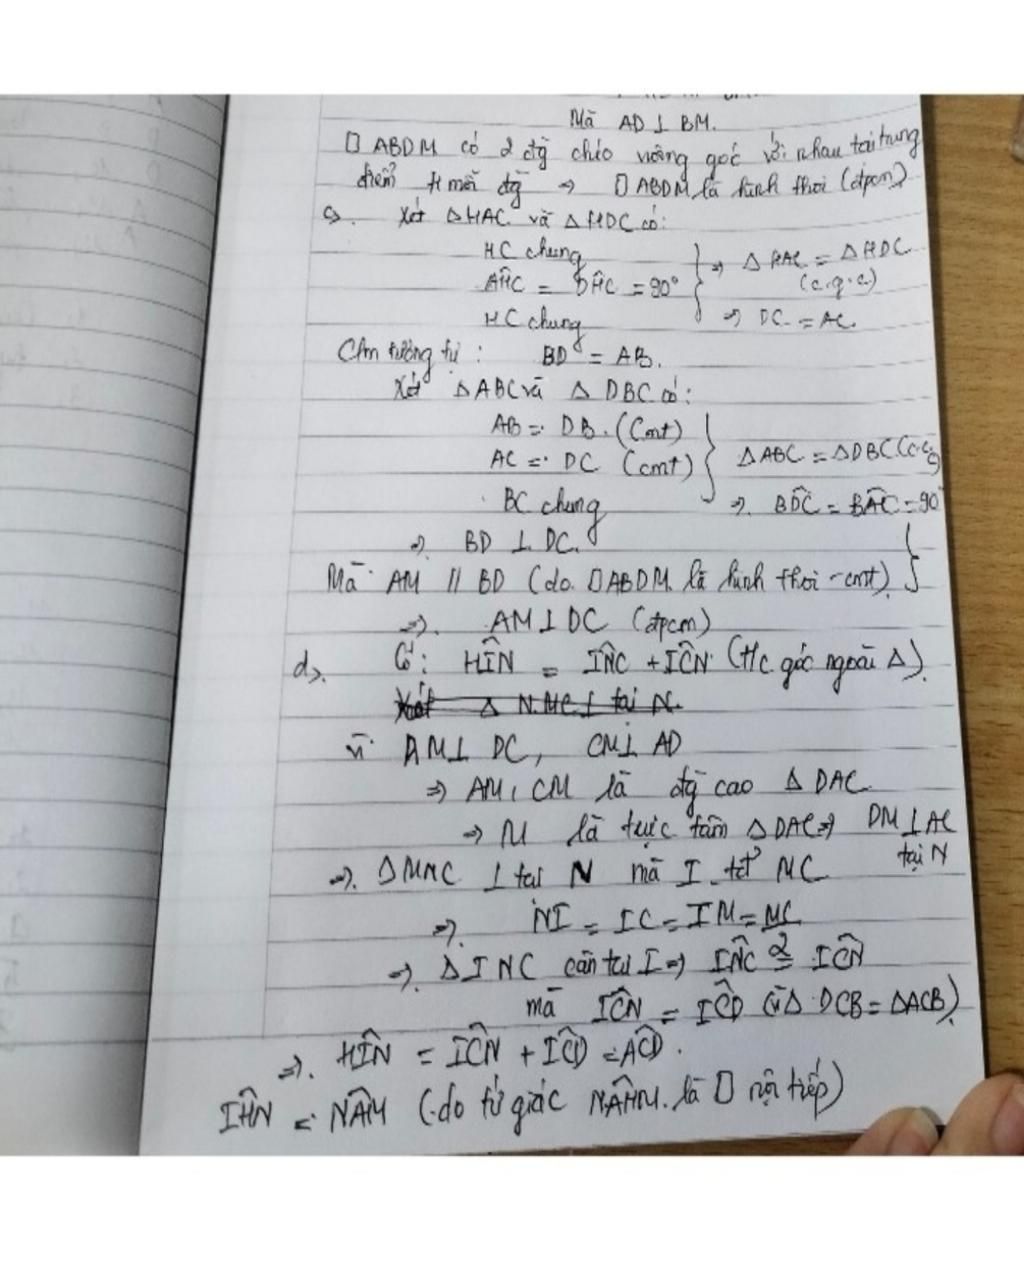 Mà AD ⊥ BM.
□ ABDM có 2 đg chéo vuông góc với nhau tại trung
điểm H mỗi đg ⇒ □ ABDM là hình thoi (đpcm)
c). Xét △HAC và △HDC có:
HC chung
AĤC = DĤC = 90° ⇒ △HAC = △HDC
(c.g.c)
HC chung ⇒ DC = AC.
Cm tương tự : BD = AB.
Xét △ABC và △ DBC có:
AB = DB. (Cmt)
AC = DC (cmt) △ABC = △DBC (c.c.c)
BC chung ⇒. BD̂C = BÂC = 90°
⇒. BD ⊥ DC.
Mà AM // BD (do □ABDM là hình thoi - cmt)
⇒. AM ⊥ DC (đpcm)
d). Có: HÎN = IN̂C + IĈN (t/c góc ngoài △).
Xét △ NMC ⊥ tại N.
Vì AM ⊥ DC, CM ⊥ AD
⇒ AM, CM là đg cao △ DAC
⇒ M là trực tâm △DAC ⇒ DM ⊥ AC
tại N
⇒. △MNC ⊥ tại N mà I tđ MC
⇒. NI = IC = IM = MC
2
⇒. △INC cân tại I ⇒ IN̂C = IĈN
mà IĈN = IĈD (vì △ DCB = △ACB).
⇒. HÎN = IĈN + IĈD = AĈD.
IĤN = NÂM (do tứ giác NAHM là □ nội tiếp)